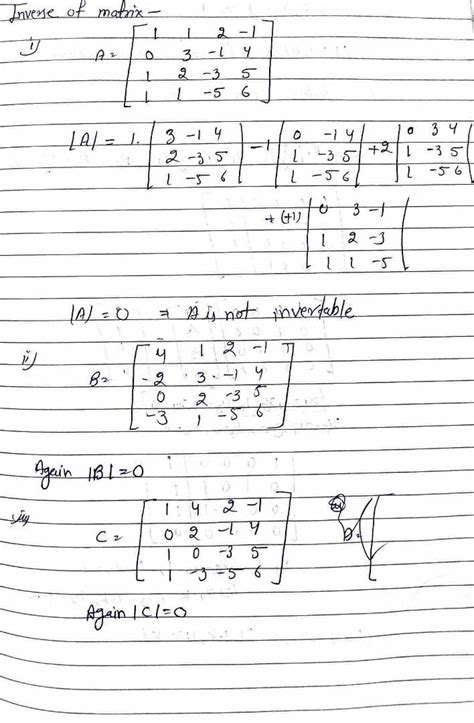 Inverse of matrix –
i) A = [ 1 1 2 -1
0 3 -1 4
1 2 -3 5
1 1 -5 6 ]
|A| = 1. | 3 -1 4 | -1 | 0 -1 4 | +2 | 0 3 4 |
| 2 -3 5 | | 1 -3 5 | | 1 -3 5 |
| 1 -5 6 | | 1 -5 6 | | 1 -5 6 |
+ (+1) | 0 3 -1 |
| 1 2 -3 |
| 1 1 -5 |
|A| = 0 ⇒ A is not invertable
ii) B = [ 4 1 2 -1
-2 3 -1 4
0 2 -3 5
-3 1 -5 6 ]
Again |B| = 0
iii) C = [ 1 4 2 -1
0 2 -1 4
1 0 -3 5
1 -3 -5 6 ]
Again |C| = 0